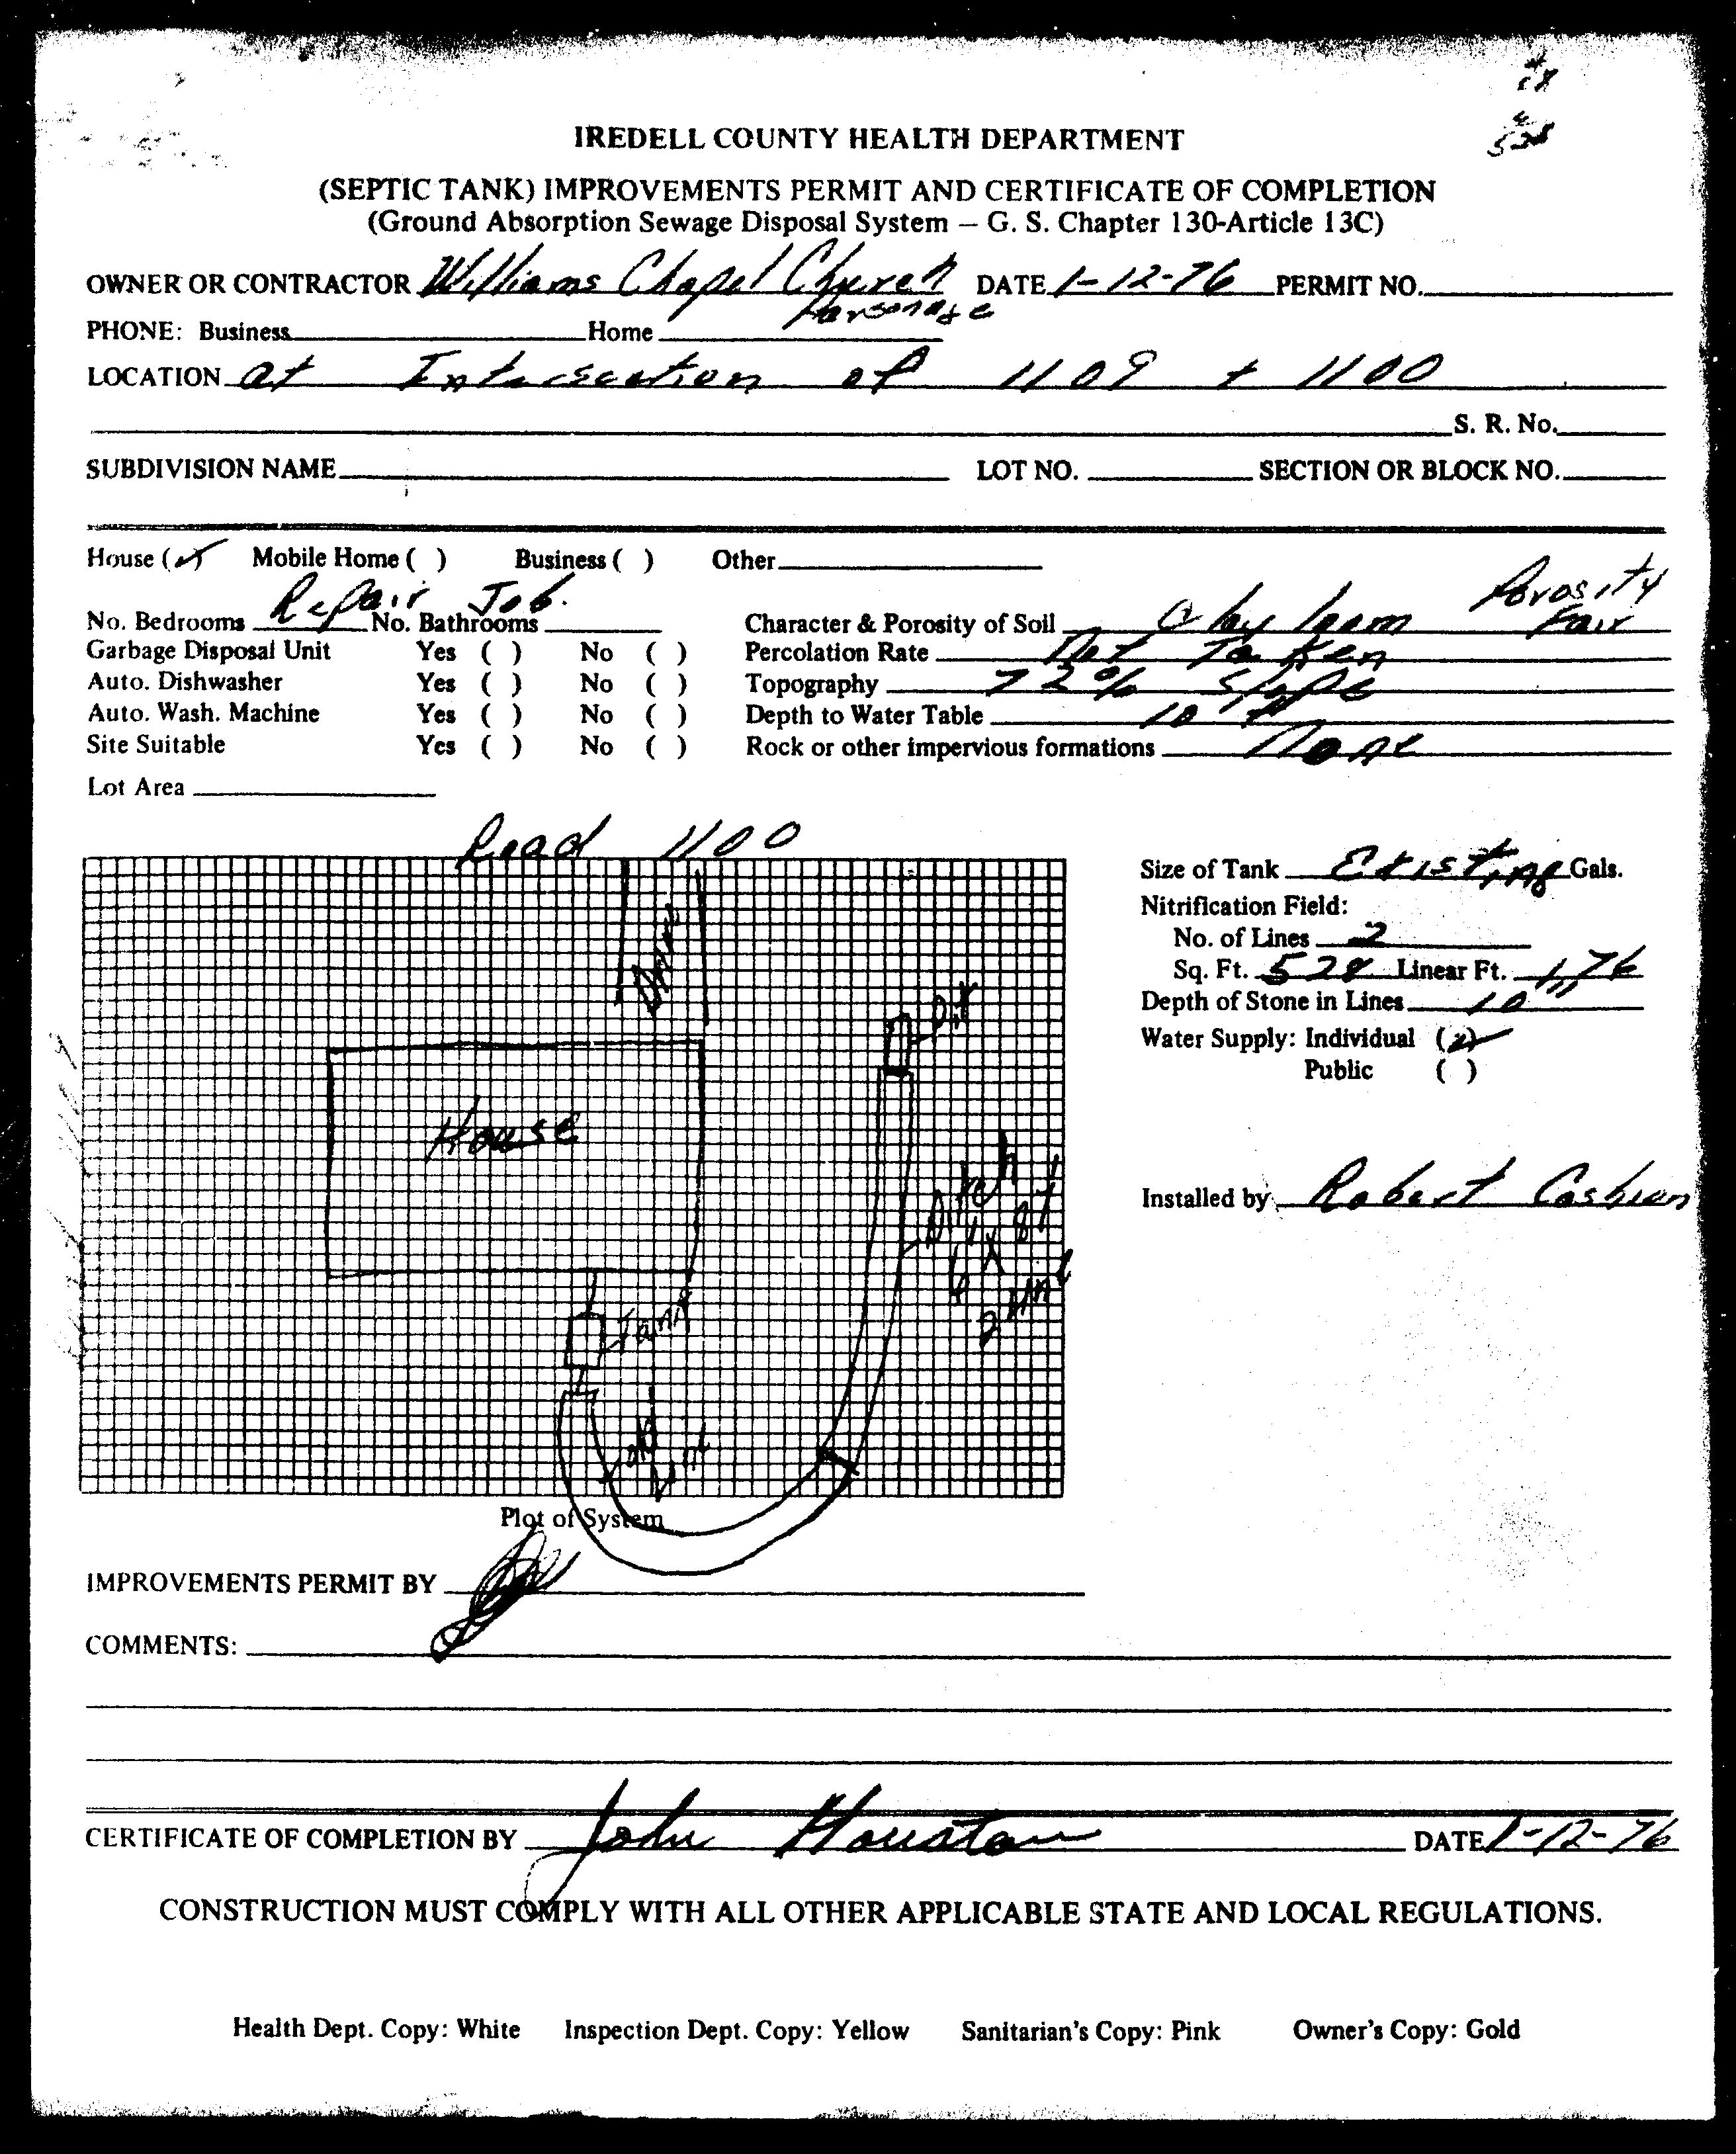 IREDELL COUNTY HEALTH DEPARTMENT
(SEPTIC TANK) IMPROVEMENTS PERMIT AND CERTIFICATE OF COMPLETION
(Ground Absorption Sewage Disposal System – G. S. Chapter 130-Article 13C)
OWNER OR CONTRACTOR Williams Chapel Church DATE 1-12-76 PERMIT NO.
Parsonage
PHONE: Business Home
LOCATION at Intersection of 1109 + 1100
S. R. No.
SUBDIVISION NAME LOT NO. SECTION OR BLOCK NO.
House (✓) Mobile Home ( ) Business ( ) Other
Repair Job. Porosity
No. Bedrooms No. Bathrooms Character & Porosity of Soil Clay loam Fair
Garbage Disposal Unit Yes ( ) No ( ) Percolation Rate Not Taken
Auto. Dishwasher Yes ( ) No ( ) Topography 72% slope
Auto. Wash. Machine Yes ( ) No ( ) Depth to Water Table 10
Site Suitable Yes ( ) No ( ) Rock or other impervious formations None
Lot Area
Road 1100
Drive
Pit
House
Ditch
Tank
old
Plot of System
Size of Tank Existing Gals.
Nitrification Field:
No. of Lines 2
Sq. Ft. 528 Linear Ft. 176
Depth of Stone in Lines 10"
Water Supply: Individual (✓)
Public ( )
Installed by Robert Cashion
IMPROVEMENTS PERMIT BY
COMMENTS:
CERTIFICATE OF COMPLETION BY John Houston DATE 1-12-76
CONSTRUCTION MUST COMPLY WITH ALL OTHER APPLICABLE STATE AND LOCAL REGULATIONS.
Health Dept. Copy: White Inspection Dept. Copy: Yellow Sanitarian's Copy: Pink Owner's Copy: Gold